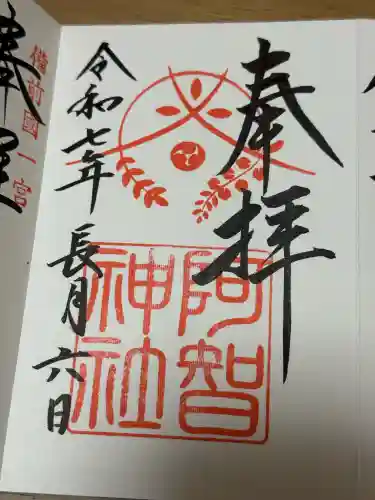 奉拝
阿智
神社
令和七年 長月 六日
備前國一宮
奉拝